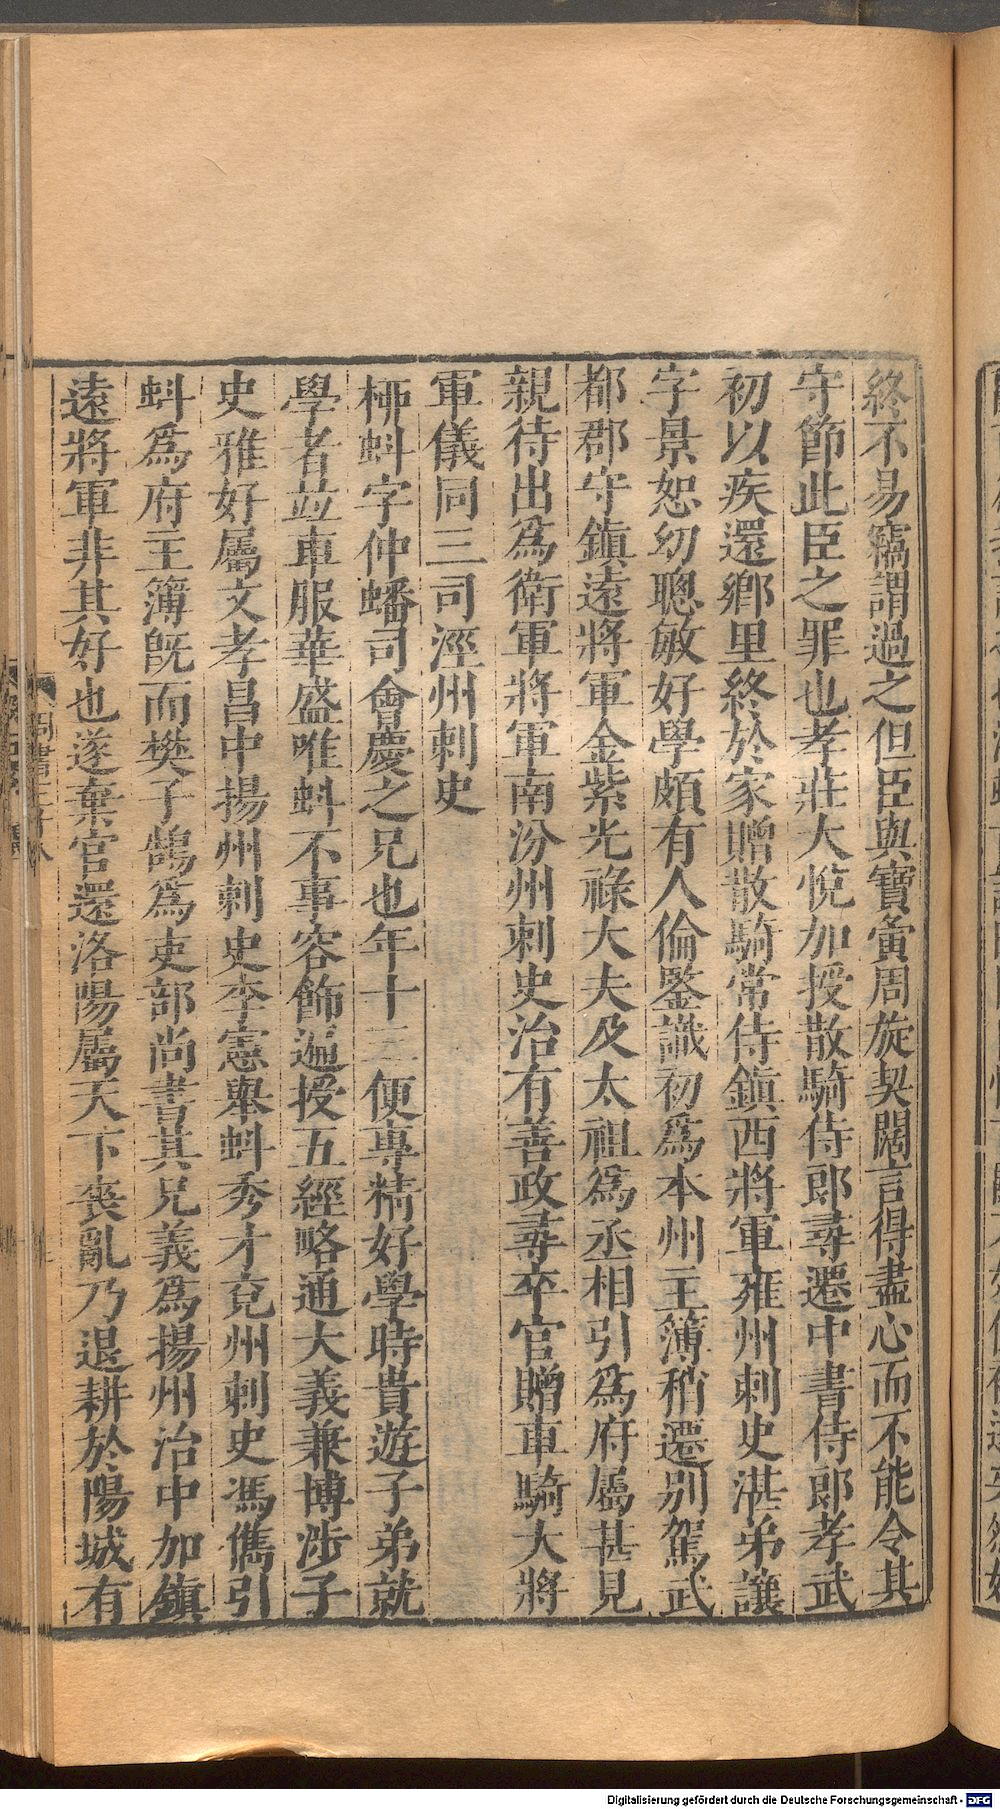 終不易竊謂過之但臣與寶夤周旋契闊言得盡心而不能令其
守節此臣之罪也孝莊大悅加授散騎侍郎尋遷中書侍郎孝武
初以疾還鄉里終於家贈散騎常侍鎮西將軍雍州刺史湛弟讓
字景恕幼聰敏好學頗有人倫鑒識初爲本州主簿稍遷別駕武
都郡守鎮遠將軍金紫光祿大夫及太祖爲丞相引爲府屬甚見
親待出爲衛軍將軍南汾州刺史治有善政尋卒官贈車騎大將
軍儀同三司涇州刺史
桞蚪字仲蟠司會慶之兄也年十三便專精好學時貴遊子弟就
學者並車服華盛唯蚪不事容飾遍授五經略通大義兼博涉子
史雅好屬文孝昌中揚州刺史李憲舉蚪秀才兗州刺史馮儁引
蚪爲府主簿既而樊子鵠爲吏部尚書其兄義爲揚州治中加鎮
遠將軍非其好也遂棄官還洛陽屬天下喪亂乃退耕於陽城有
Digitalisierung gefördert durch die Deutsche Forschungsgemeinschaft - DFG